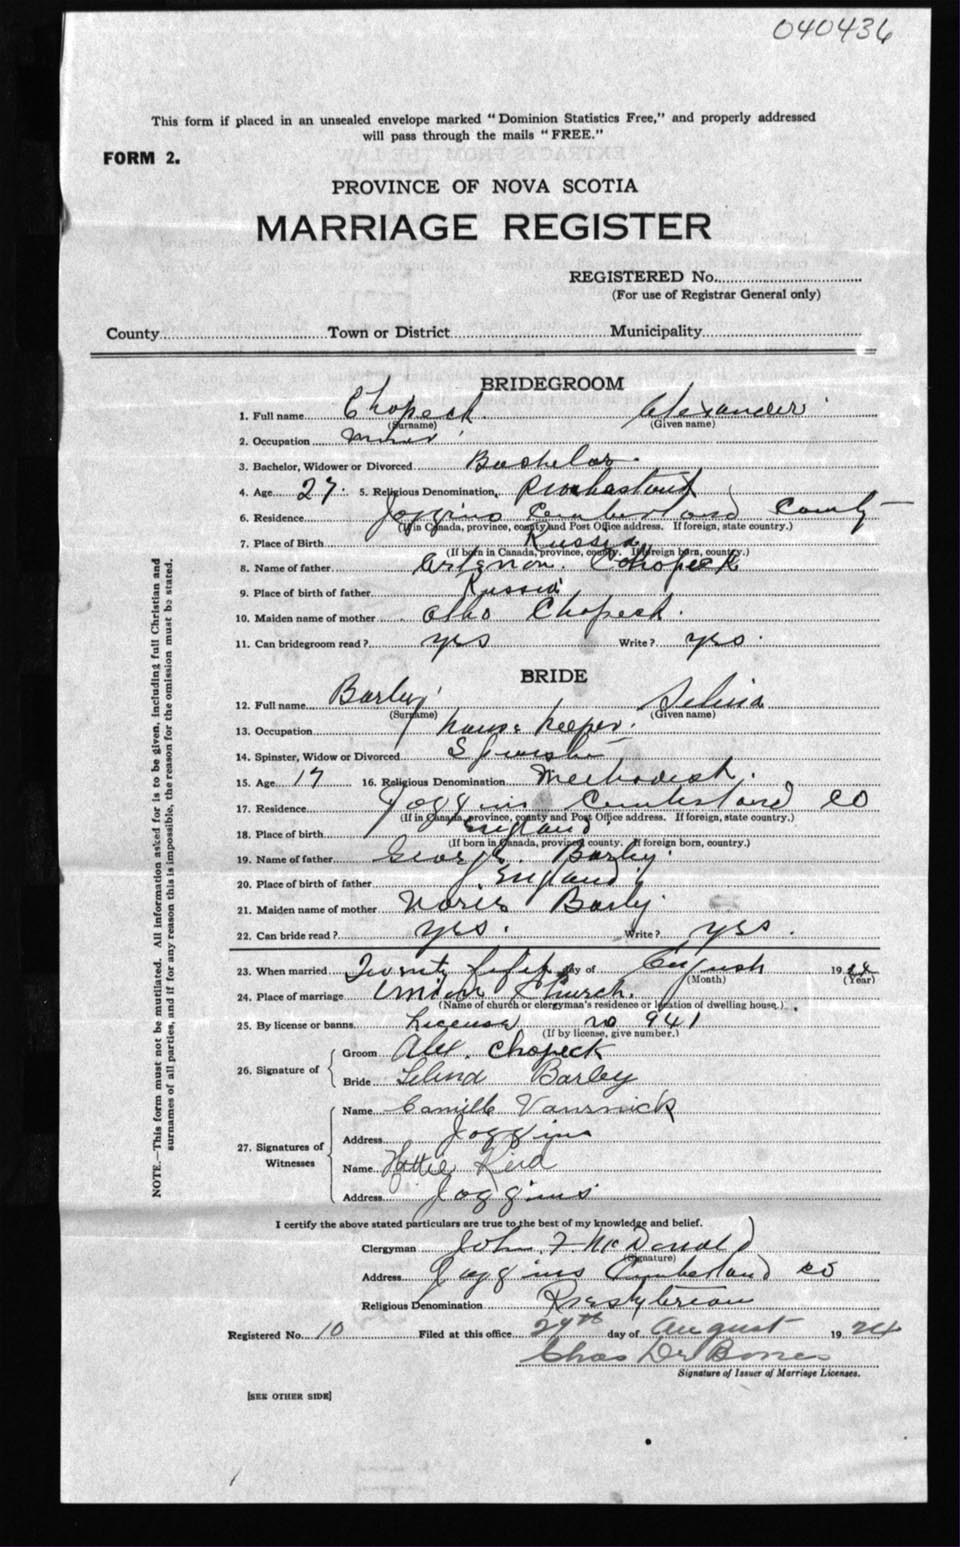 040436
This form if placed in an unsealed envelope marked "Dominion Statistics Free," and properly addressed
will pass through the mails "FREE."
FORM 2.
PROVINCE OF NOVA SCOTIA
MARRIAGE REGISTER
REGISTERED No.
(For use of Registrar General only)
County Town or District Municipality
BRIDEGROOM
1. Full name Chopeck Alexander
(Surname) (Given name)
2. Occupation miner
3. Bachelor, Widower or Divorced Bachelor
4. Age 27 5. Religious Denomination
6. Residence Joggins Cumberland County
(If in Canada, province, county and Post Office address. If foreign, state country.)
7. Place of Birth Russia
(If born in Canada, province, county. If foreign born, country.)
8. Name of father Chopeck
9. Place of birth of father Russia
10. Maiden name of mother Chopeck
11. Can bridegroom read? yes Write? yes
BRIDE
12. Full name Barley Selina
(Surname) (Given name)
13. Occupation house keeper
14. Spinster, Widow or Divorced Spinster
15. Age 17 16. Religious Denomination Methodist
17. Residence Joggins Cumberland CO
(If in Canada, province, county and Post Office address. If foreign, state country.)
18. Place of birth England
(If born in Canada, province, county. If foreign born, country.)
19. Name of father George Barley
20. Place of birth of father England
21. Maiden name of mother Barly
22. Can bride read? yes. Write? yes.
23. When married Twenty day of August 1924
(Month) (Year)
24. Place of marriage Church.
(Name of church or clergyman's residence or location of dwelling house.)
25. By license or banns License no 941
(If by license, give number.)
26. Signature of
Groom Alex. Chopeck
Bride Barley
27. Signatures of Witnesses
Name Camille
Address Joggins
Name Hattie
Address Joggins
I certify the above stated particulars are true to the best of my knowledge and belief.
Clergyman John F McDonald
(Signature)
Address Joggins Cumberland CO
Religious Denomination Presbyterian
Registered No. 10 Filed at this office 29th day of August 1924
Chas
Signature of Issuer of Marriage Licenses.
[SEE OTHER SIDE]
NOTE.—This form must not be mutilated. All information asked for is to be given, including full Christian and
surnames of all parties, and if for any reason this is impossible, the reason for the omission must be stated.